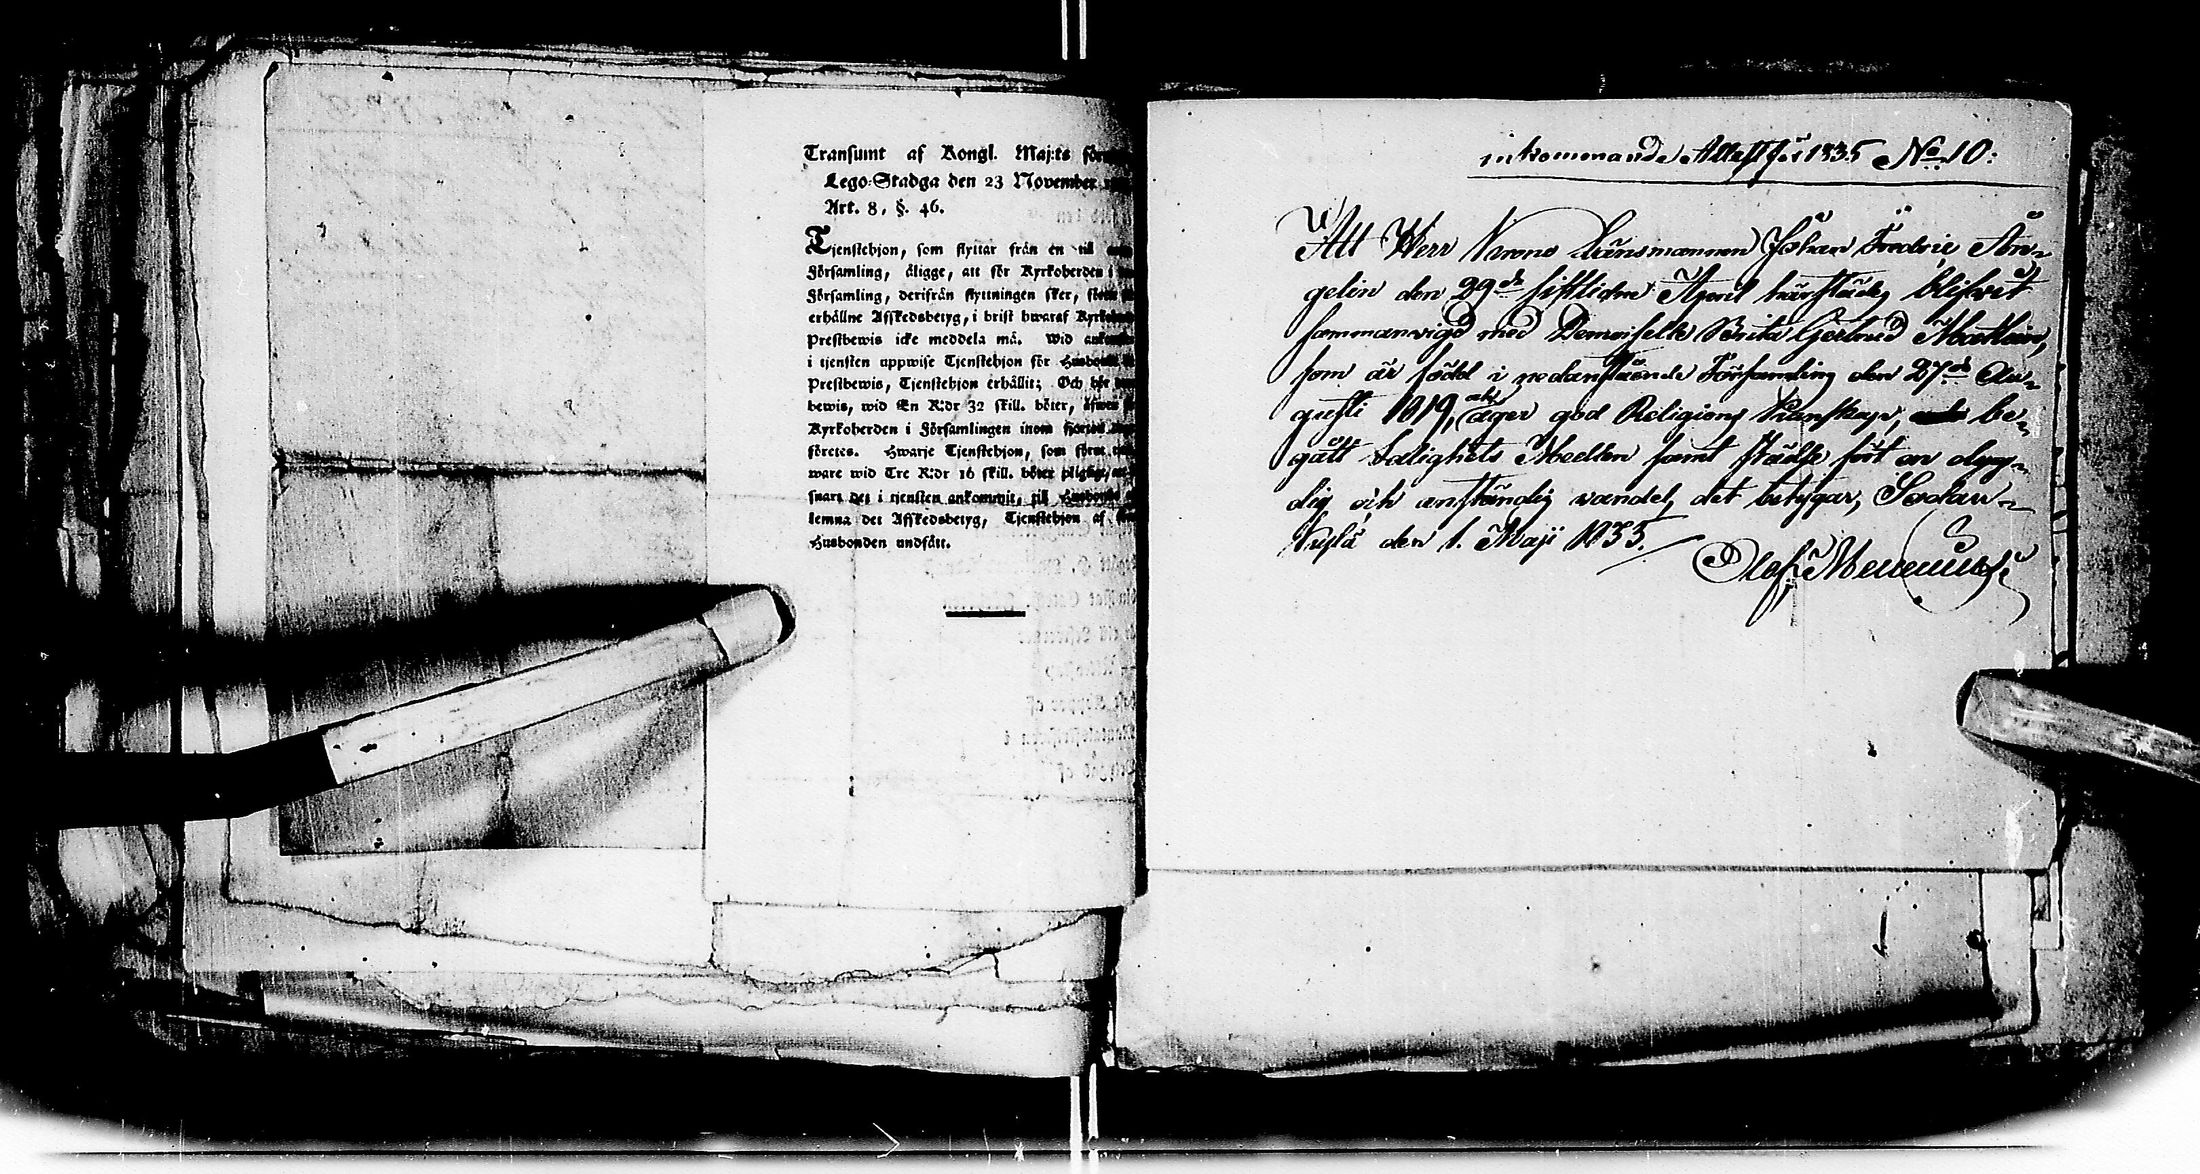 Transumt af Kongl. Maj:ts
Lego-Stadga den 23 November
Art. 8, §. 46.
Tjenstehjon, som flyttar från en til
Församling, åligge, att för Kyrkoherden i
Församling, derifrån flyttningen sker,
erhållne Afskedsbetyg, i brist hwaraf
Prestbewis icke meddela må. Wid
i tjensten uppwise Tjenstehjon för Husbonde
Prestbewis, Tjenstehjon erhållit; Och bör
bewis, wid En R:dr 32 skill. böter, äfwen
Kyrkoherden i Församlingen inom
företes. Hwarje Tjenstehjon, som
ware wid Tre R:dr 16 skill. böter pligtigt, at
snart det i tjensten ankommit, til Husbonde
lemna det Afskedsbetyg, Tjenstehjon af
Husbonden undfått.
inkommande Attest för 1835 No 10:
Att Herr Krono Länsmannen Johan Fredric Än-
gelin den 29de sistlidne April härstädes blifvit
sammanvigd med Demoiselle Brita Gertrud Mathlin,
som är född i nedanstående Församling den 27de Au-
gusti 1819, äger god Religions kunskap, be-
gått Salighets Medlen samt städse fört en dyg-
dig och anständig vandel, det betygar, Sodan-
kylä den 1. Maji 1835.
Olof Menenius